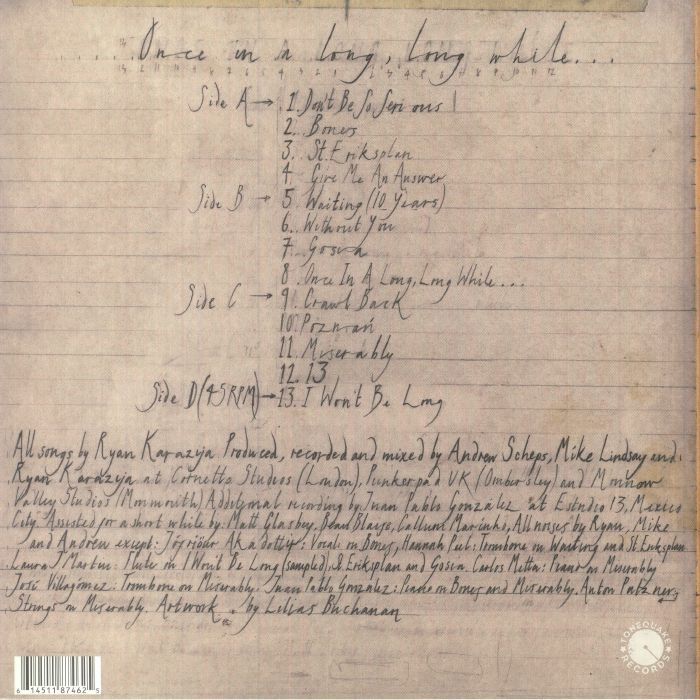 ...Once in a long, long while...
Side A → 1. Don't Be So Serious
2. Bones
3. St. Eriksplan
4. Give Me An Answer
Side B → 5. Waiting (10 Years)
6. Without You
7. Gosia
8. Once In A Long, Long While...
Side C → 9. Crawl Back
10. Poznań
11. Miserably
12. 13
Side D (45RPM) → 13. I Won't Be Long
All songs by Ryan Karazija Produced, recorded and mixed by Andrew Scheps, Mike Lindsay and
Ryan Karazija at Cornetto Studios (London), Punkerpad UK (Ombersley) and Monnow
Valley Studios (Monmouth) Additional recording by Juan Pablo González at Estudio 13, Mexico
City. Assisted for a short while by: Matt Glasbey, Beau Blaise, Callum Marinho, All noises by Ryan, Mike
and Andrew except: Jófríður Ákadóttir: Vocals on Bones, Hannah Peel: Trombone on Waiting and St. Eriksplan
Laura Martin: Flute on I Won't Be Long (sampled), St. Eriksplan and Gosia. Carlos Metta: Piano on Miserably
José Villagomez: Trombone on Miserably. Juan Pablo González: Piano on Bones and Miserably. Anton Patzner:
Strings on Miserably. Artwork by Lilias Buchanan
6 14511 87462 5
TONEQUAKE RECORDS